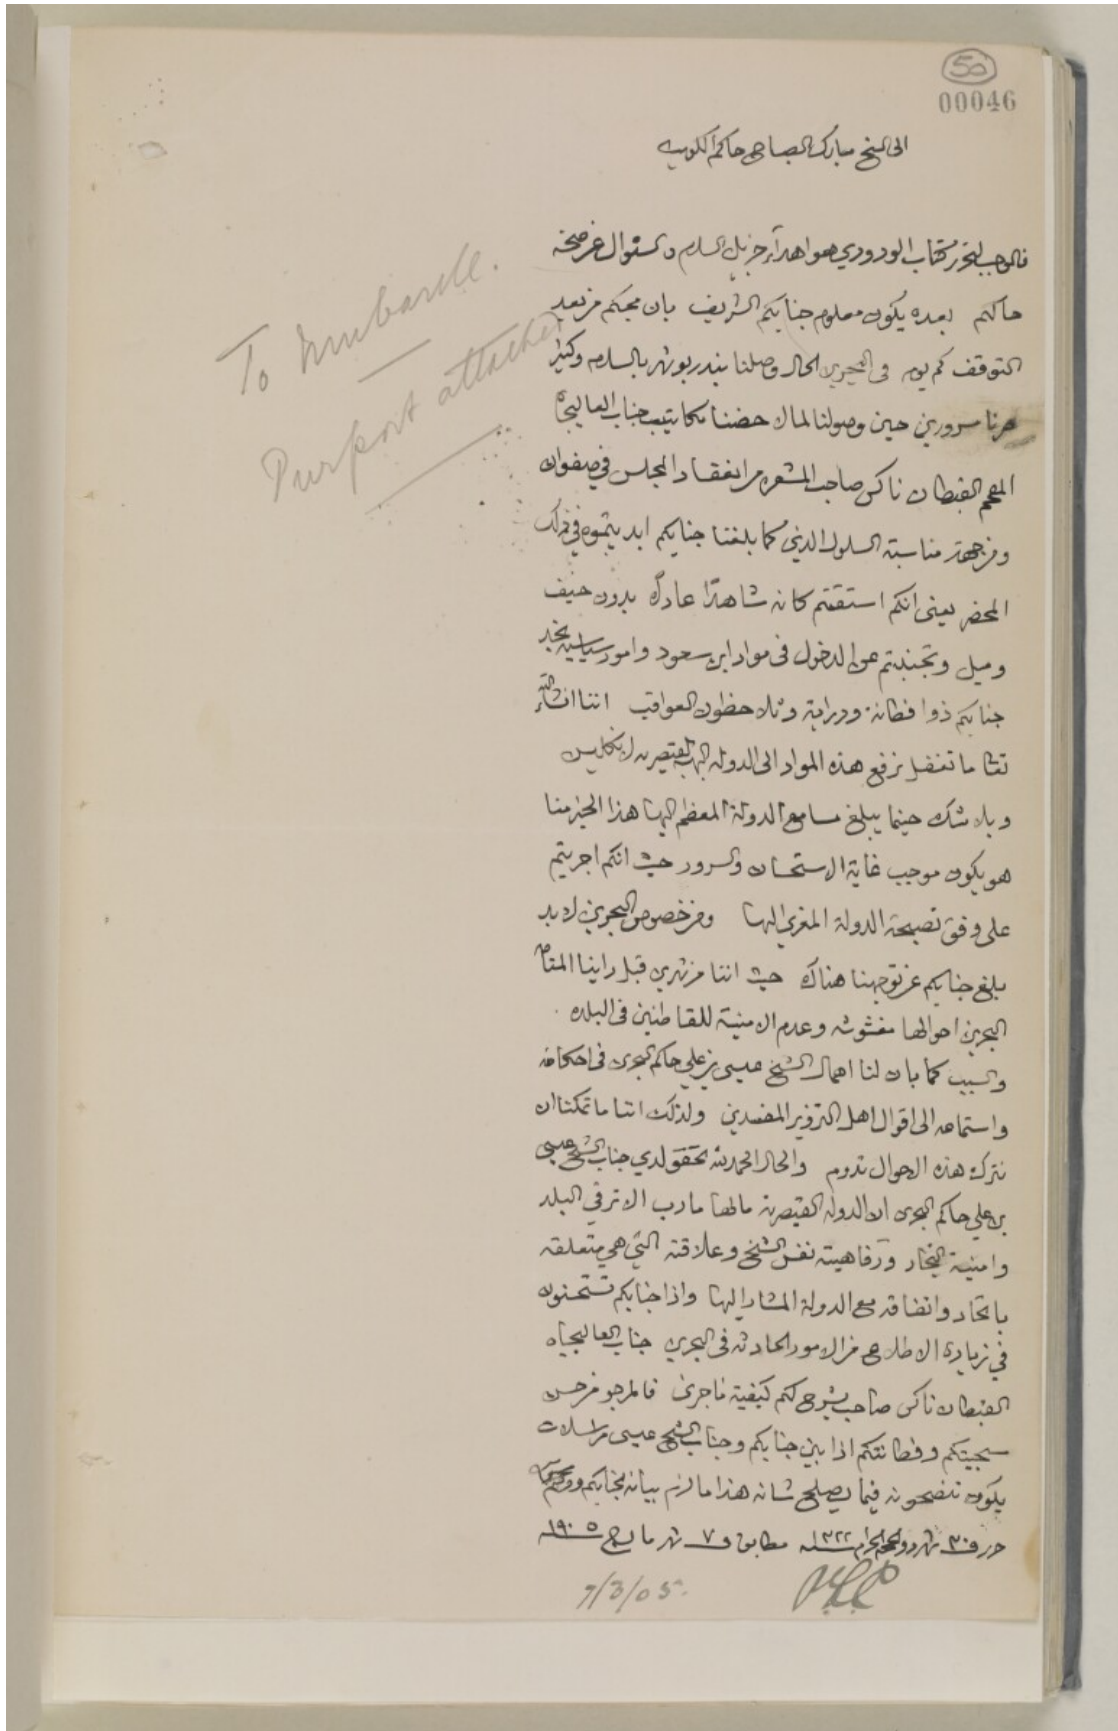 50
00046
الى الشيخ مبارك الصباح حاكم الكويت
فالموجب لتحرير كتاب الودودي هو اهداء جزيل السلام والسئوال عن صحة
حالكم بعده يكون معلوم جنابكم الشريف بان محبكم من بعد
التوقف كم يوم في البحرين الحال وصلنا بندر بوشهر بالسلامه وكثيرا
صرنا مسرورين حين وصولنا لمالاحضنا مكاتيب جناب العاليجاه
المفخم القبطان ناكس صاحب المشعره من انعقاد المجلس في صفوان
ومن جهة مناسبته السلوك الذي كما بلغنا جنابكم ابديتموه في ذلك
المحضر يعني انكم استقمتم كانه شاهدًا عادلًا بدون حيف
وميل وتجنبتم عن الدخول في مواد ابن سعود وامور سياسية نجد
جنابكم ذوا فطانة ودراية وتلاحظون العواقب اننا انشاء الله
تعا ما نغفل نرفع هذه المواد الى الدولة البهية القيصرية الانكليس
وبلا شك حينما يبلغ مسامع الدولة المعظم اليها هذا الخبر منا
هو يكون موجب غاية الاستحسان والسرور حيث انكم اجريتم
على وفق نصيحة الدولة المعزي اليها ومن خصوص البحرين لابد
بلغ جنابكم عن توجهنا هناك حيث اننا من شهرين قبل راينا
البحرين احوالها مغشوشه وعدم الامنية للقاطنين في البلده
والسبب كما بان لنا اهمال الشيخ عيسى بن علي حاكم البحرين في احكامه
واستماعه الى اقوال اهل التزوير المفسدين ولذلك اننا ما تمكنا ان
نترك هذه الاحوال تدوم والحال الحمد لله تحقق لدي جناب الشيخ عيسى
بن علي حاكم البحرين ان الدولة القيصرية مالها مارب الا ترقي البلد
وامنية التجار ورفاهيته نفس الشيخ وعلاقته التي هي متعلقه
باتحاد واتفاقه مع الدولة المشار اليها واذا جنابكم تستحسنون
في زيادة الاطلاع من الامور الحادثه في البحرين جناب العاليجاه
القبطان ناكس صاحب يشرح لكم كيفية ماجرى فالمرجو من حسن
سجيتكم وفطانتكم اذا بين جنابكم وجناب الشيخ عيسى مراسلات
يكون تنصحونه فيما يصلح شانه هذا ما لزم بيانه لجنابكم ودمتم
حرر في ٣٠ شهر ذو الحجه الحرام سنه ١٣٢٢ مطابق ٧ شهر مارچ سنه ١٩٠٥
7/3/05.
To Mubarek.
Purport attached